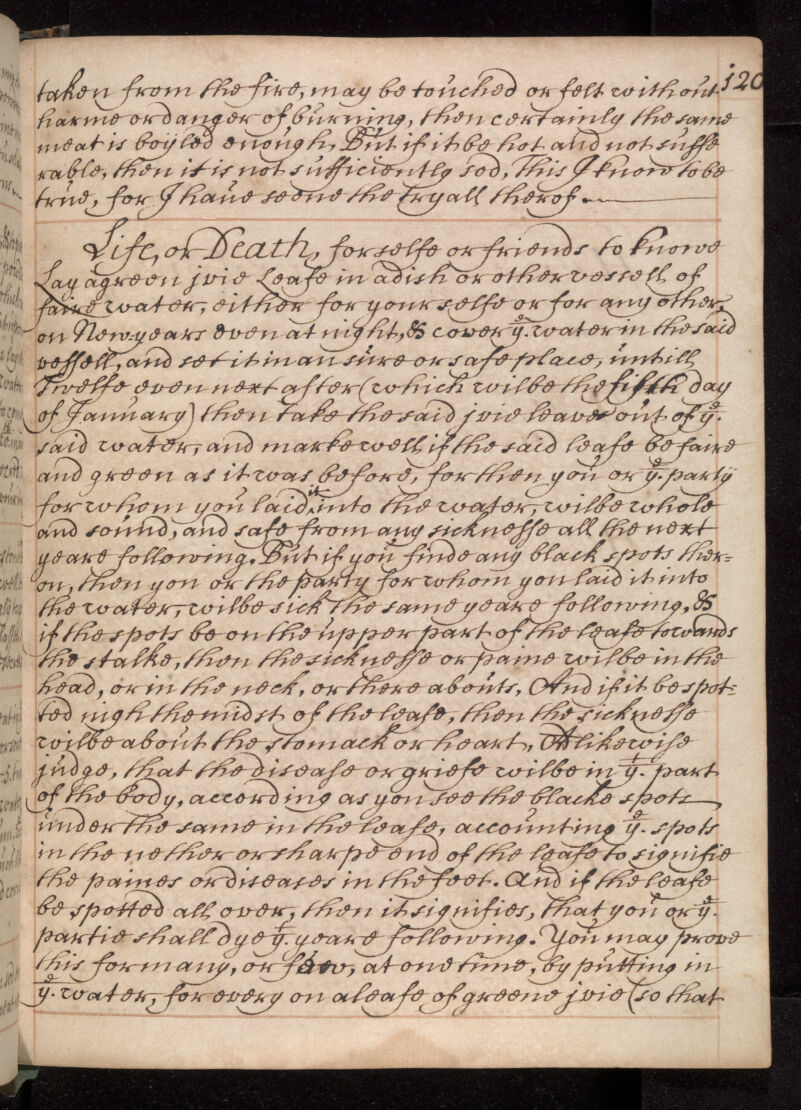 120
taken from the fire, may be touched or felt without
harme or danger of burning, then certainly the same
meat is boyled enough, But if it be hot and not suffe
rable, then it is not sufficiently sod, This I know to be
true, for I haue seene the tryall therof.
Life, or Death, for selfe or friends to knowe
Lay a green jvie Leafe in a dish or other vessell of
faire water, either for your selfe or for any other,
on New-years even at night, & cover yᵉ. water in the said
vessell, and set it in an sure or safe place, untill
Twelfe even next after (which wilbe the fifth day
of January) then take the said jvie leave out of yᵉ.
said water, and marke well if the said leafe be faire
and green as it was before, for then you or yᵉ. party
for whom you laid it into the water, wilbe whole
and sound, and safe from any sicknesse all the next
yeare following. But if you finde any black spots ther=
on, then you or the party for whom you laid it into
the water, wilbe sick the same yeare following, &
if the spots be on the upper part of the leafe towards
the stalke, then the sicknesse or paine wilbe in the
head, or in the neck, or there abouts, And if it be spot=
ted nigh the midst of the leafe, then the sicknesse
wilbe about the stomack or heart, Alikewise
judge, that the disease or griefe wilbe in yᵗ. part
of the body, according as you see the blacke spots
under the same in the leafe, accounting yᵉ. spots
in the nether or sharpe end of the leafe to signifie
the paines or diseases in the feet. And if the leafe
be spotted all over, then it signifies, that you or yᵉ.
partie shall dye yᵗ. yeare following. You may prove
this for many, or few, at one time, by putting in
yᵉ. water, for every on a leafe of greene jvie (so that